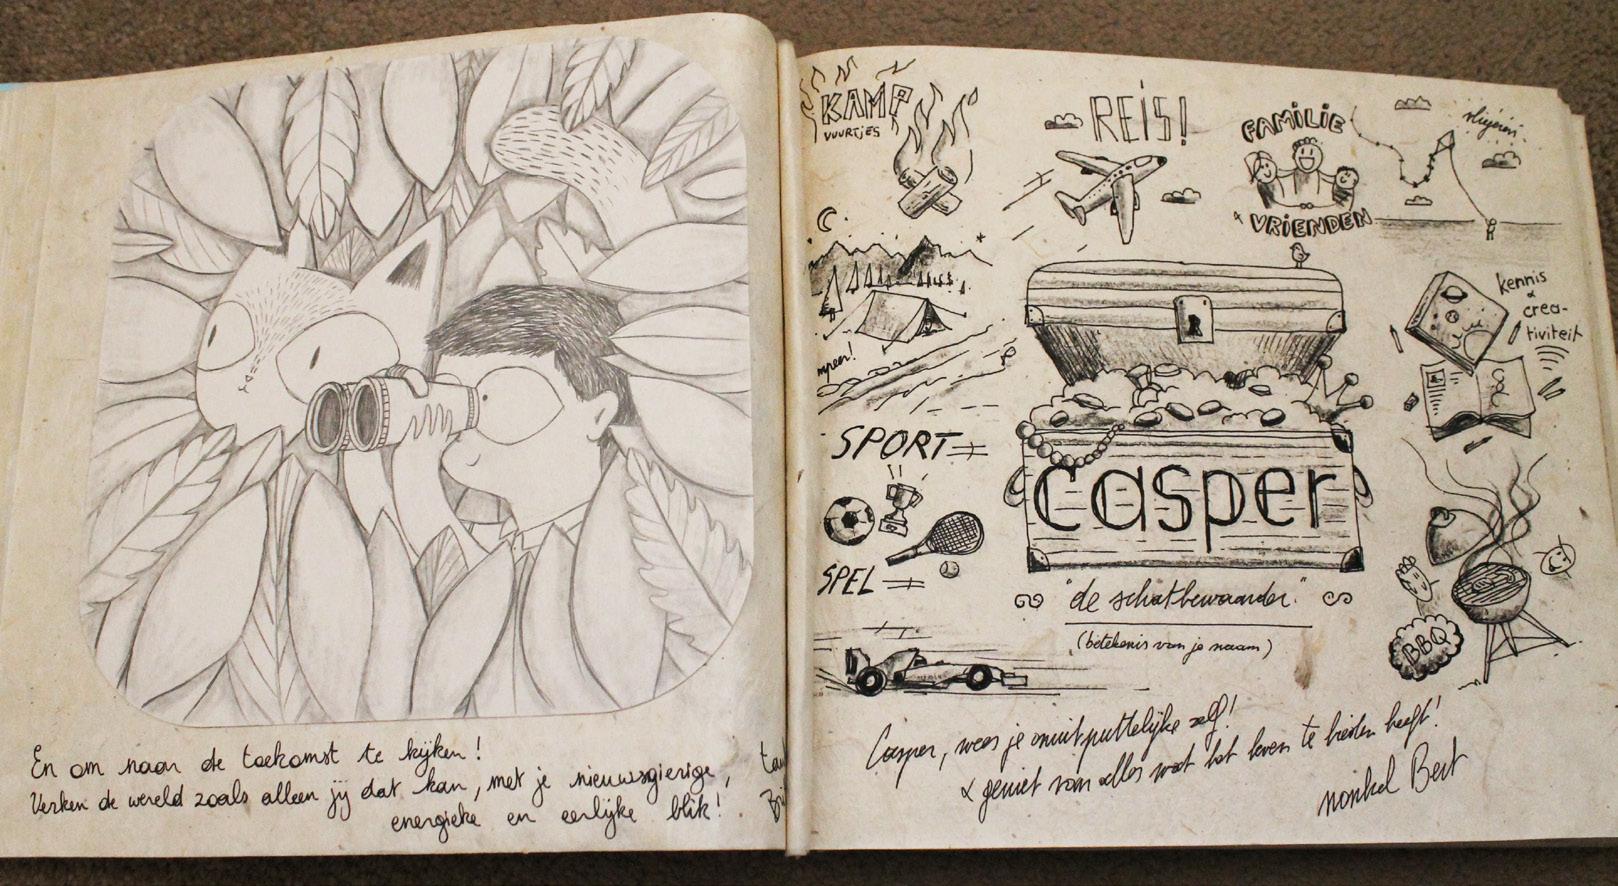 En om naar de toekomst te kijken!
Verken de wereld zoals alleen jij dat kan, met je nieuwsgierige,
energieke en eerlijke blik!
KAMP
VUURTJES
REIS!
FAMILIE
& VRIENDEN
vliegeren
kennis
&
crea-
tiviteit
SPORT
SPEL
casper
"de schatbewaarder."
(betekenis van je naam)
BBQ
Casper, wees je onuitputtelijke zelf!
& geniet van alles wat het leven te bieden heeft!
nonkel Bert